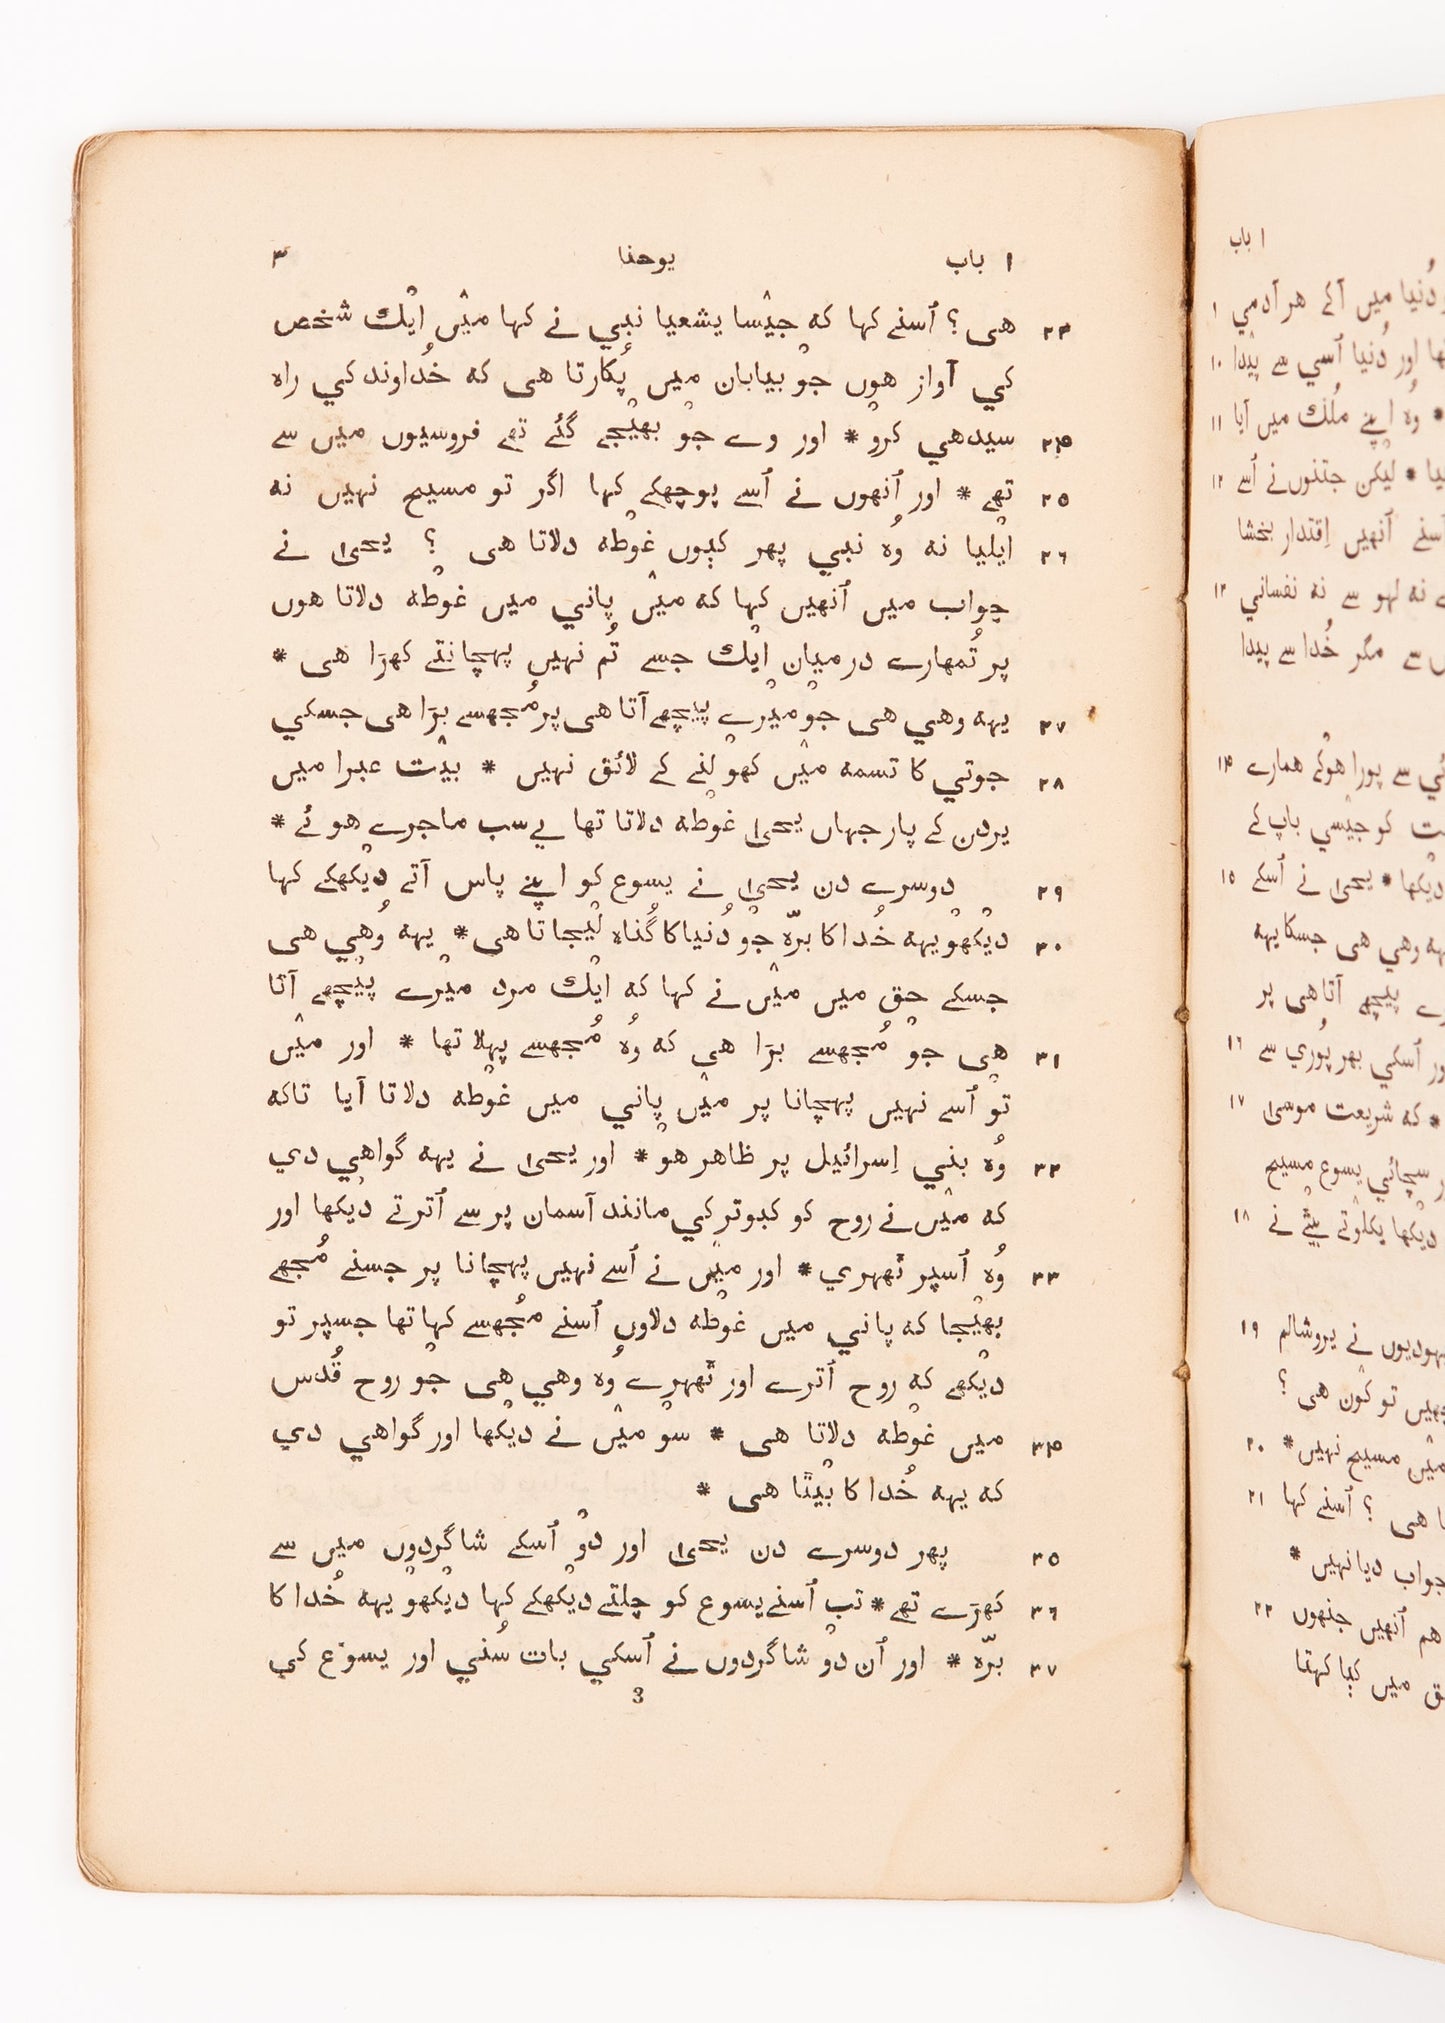 ۱ باب یوحنا ۳
۲۳ هی؟ اُسنے کہا کہ جیسا یشعیا نبي نے کہا میں ایک شخص
کي آواز هوں جو بیابان میں پُکارتا هی کہ خُداوند کي راہ
۲۴ سیدهي کرو * اور وے جو بهیجے گئے تهے فروسیوں میں سے
۲۵ تهے * اور اُنهوں نے اُسے پوچهکے کہا اگر تو مسیح نہیں نہ
۲۶ ایلیا نہ وُہ نبي پهر کیوں غوطہ دلاتا هی ؟ یحیٰ نے
جواب میں اُنهیں کہا کہ میں پاني میں غوطہ دلاتا هوں
پر تُمهارے درمیان ایک جسے تُم نہیں پہچانتے کهڑا هی *
۲۷ یہہ وهي هی جو میرے پیچهے آتا هی پر مُجهسے بڑا هی جسکي
۲۸ جوتي کا تسمہ میں کهولنے کے لائق نہیں * بیت عبرا میں
یردن کے پار جہاں یحیٰ غوطہ دلاتا تها یے سب ماجرے هوئے *
۲۹ دوسرے دن یحیٰ نے یسوع کو اپنے پاس آتے دیکهکے کہا
۳۰ دیکهو یہہ خُدا کا برّہ جو دُنیا کا گُناہ لیجاتا هی * یہہ وُهي هی
جسکے حق میں میں نے کہا کہ ایک مرد میرے پیچهے آتا
۳۱ هی جو مُجهسے بڑا هی کہ وُہ مُجهسے پہلا تها * اور میں
تو اُسے نہیں پہچانا پر میں پاني میں غوطہ دلاتا آیا تاکہ
۳۲ وُہ بني اِسرائیل پر ظاهر هو * اور یحیٰ نے یہہ گواهي دي
کہ میں نے روح کو کبوتر کي مانند آسمان پر سے اُترتے دیکها اور
۳۳ وُہ اُسپر ٹهہري * اور میں نے اُسے نہیں پہچانا پر جسنے مُجهے
بهیجا کہ پاني میں غوطہ دلاوں اُسنے مُجهسے کہا تها جسپر تو
دیکهے کہ روح اُترے اور ٹهہرے وُہ وهي هی جو روح قُدس
۳۴ میں غوطہ دلاتا هی * سو میں نے دیکها اور گواهي دي
کہ یہہ خُدا کا بیٹا هی *
۳۵ پهر دوسرے دن یحیٰ اور دو اُسکے شاگردوں میں سے
۳۶ کهڑے تهے * تب اُسنے یسوع کو چلتے دیکهکے کہا دیکهو یہہ خُدا کا
۳۷ برّہ * اور اُن دو شاگردوں نے اُسکي بات سُني اور یسوع کي
3
۱ باب
دُنیا میں آکے هر آدمي ۱
اور دُنیا اُسي سے پیدا ۱۰
* وُہ اپنے مُلک میں آیا ۱۱
* لیکن جتنوں نے اُسے ۱۲
اُنهیں اِقتدار بخشا
نہ لہو سے نہ نفساني ۱۳
سے مگر خُدا سے پیدا
سے پورا هوکے همارے ۱۴
کو جیسي باپ کے
دیکها * یحیٰ نے اُسکے ۱۵
وهي هی جسکا یہہ
پیچهے آتا هی پر
اُسکي بهرپُوري سے ۱۶
* کہ شریعت موسیٰ ۱۷
سچائي یسوع مسیح
دیکها یکلوتے بیٹے نے ۱۸
یہودیوں نے یروشالم ۱۹
تو کون هی ؟
میں مسیح نہیں * ۲۰
هی ؟ اُسنے کہا ۲۱
جواب دیا نہیں *
هم اُنهیں جنهوں ۲۲
میں کیا کہتا